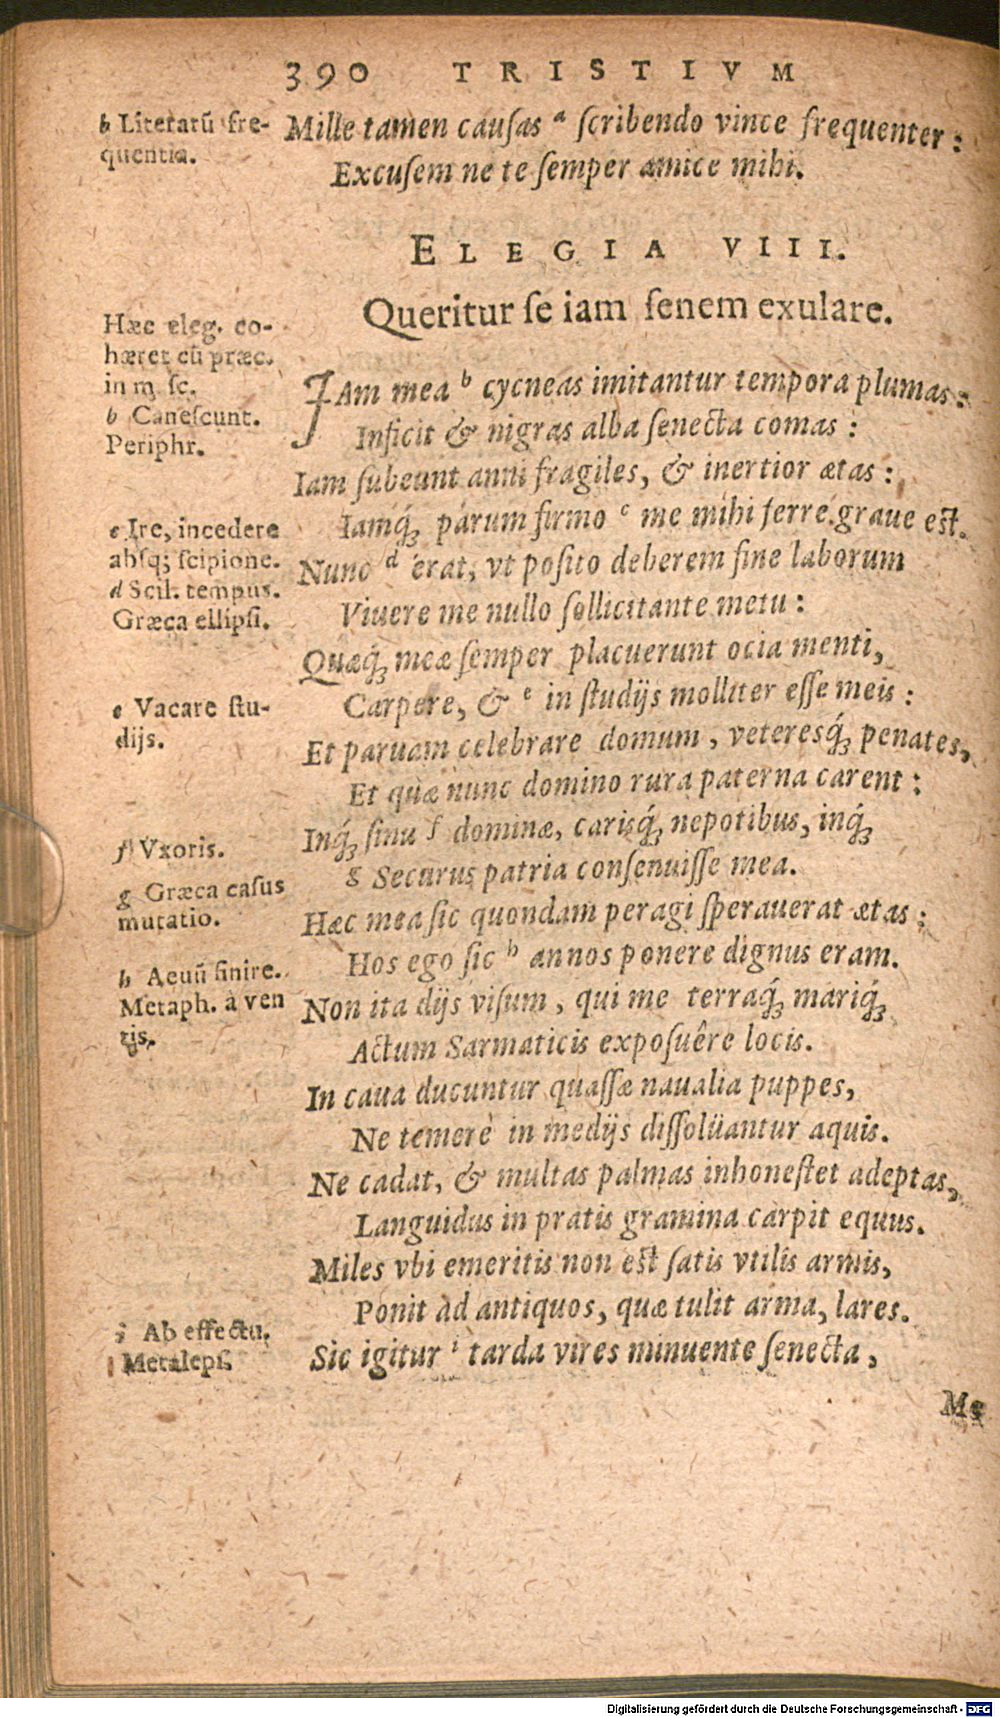 390 TRISTIVM
b Literatū fre-
quentia.
Mille tamen causas ᵃ scribendo vince frequenter:
Excusem ne te semper amice mihi.
ELEGIA VIII.
Queritur se iam senem exulare.
Hæc eleg. co-
hæret cū præc.
in m̃ sc.
b Canescunt.
Periphr.
IAm mea ᵇ cycneas imitantur tempora plumas:
Inficit & nigras alba senecta comas:
Iam subeunt anni fragiles, & inertior ætas:
Iamq́; parum firmo ᶜ me mihi ferre graue est.
c Ire, incedere
absq; scipione.
d Scil. tempus.
Græca ellipsi.
Nunc ᵈ erat, vt posito deberem fine laborum
Viuere me nullo sollicitante metu:
Quæq́; meæ semper placuerunt ocia menti,
Carpere, & ᵉ in studijs molliter esse meis:
e Vacare stu-
dijs.
Et paruam celebrare domum, veteresq́; penates,
Et quæ nunc domino rura paterna carent:
Inq́; sinu ᶠ dominæ, carisq́; nepotibus, inq́;
g Securus patria consenuisse mea.
f Vxoris.
g Græca casus
mutatio.
Hæc mea sic quondam peragi sperauerat ætas:
Hos ego sic ʰ annos ponere dignus eram.
h Aeuū finire.
Metaph. à ven
tis.
Non ita dijs visum, qui me terraq́; mariq́;
Actum Sarmaticis exposuêre locis.
In caua ducuntur quassæ naualia puppes,
Ne temerè in medijs dissolüantur aquis.
Ne cadat, & multas palmas inhonestet adeptas,
Languidus in pratis gramina carpit equus.
Miles vbi emeritis non est satis vtilis armis,
Ponit ad antiquos, quæ tulit arma, lares.
i Ab effectu.
Metaleps.
Sic igitur ⁱ tarda vires minuente senecta,
Me
Digitalisierung gefördert durch die Deutsche Forschungsgemeinschaft - DFG